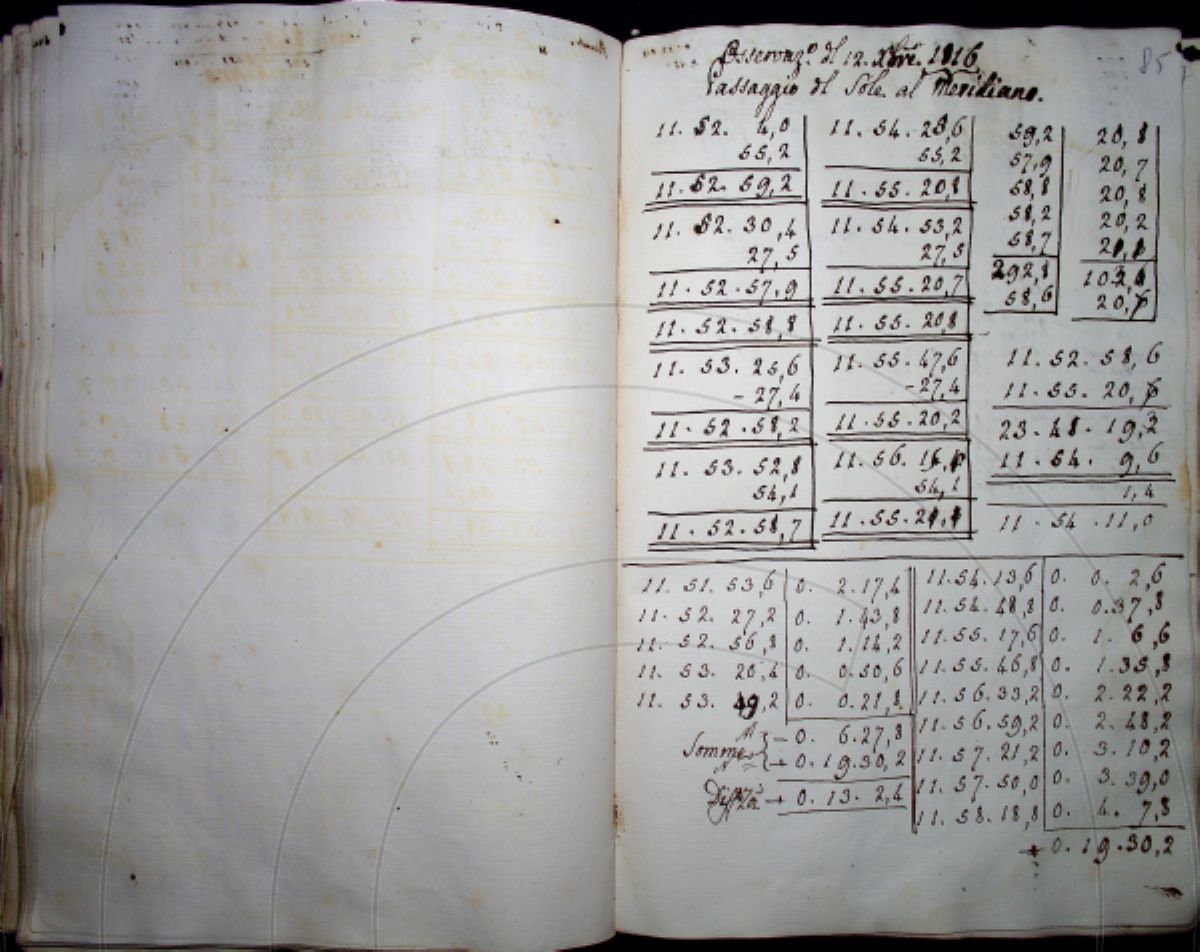 Osservaz.e del 12. Xbre. 1816.
Passaggio del Sole al Meridiano.
85
11. 52. 4,0
55,2
11. 52. 59,2
11. 52. 30,4
27,5
11. 52. 57,9
11. 52. 58,8
11. 53. 25,6
- 27,4
11. 52. 58,2
11. 53. 52,8
54,1
11. 52. 58,7
11. 54. 25,6
55,2
11. 55. 20,8
11. 54. 53,2
27,5
11. 55. 20,7
11. 55. 20,8
11. 55. 47,6
- 27,4
11. 55. 20,2
54,1
59,2
57,9
58,8
58,2
58,7
292,8
58,6
20,8
20,7
20,8
20,2
11. 52. 58,6
23. 48. 19,2
11. 54. 9,6
1,4
11. 54. 11,0
11. 51. 53,6 0. 2. 17,4
11. 52. 27,2 0. 1. 43,8
11. 52. 56,8 0. 1. 14,2
11. 53. 20,4 0. 0. 50,6
11. 53. 49,2 0. 0. 21,8
Somme - 0. 6. 27,8
+ 0. 19. 30,2
Diffza + 0. 13. 2,4
11. 54. 13,6 0. 0. 2,6
11. 54. 48,8 0. 0. 37,8
11. 55. 17,6 0. 1. 6,6
11. 55. 46,8 0. 1. 35,8
11. 56. 33,2 0. 2. 22,2
11. 56. 59,2 0. 2. 48,2
11. 57. 21,2 0. 3. 10,2
11. 57. 50,0 0. 3. 39,0
11. 58. 18,8 0. 4. 7,8
+ 0. 19. 30,2